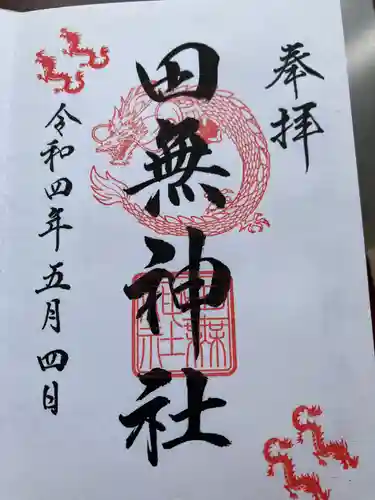 奉拝
田無神社
令和四年五月四日